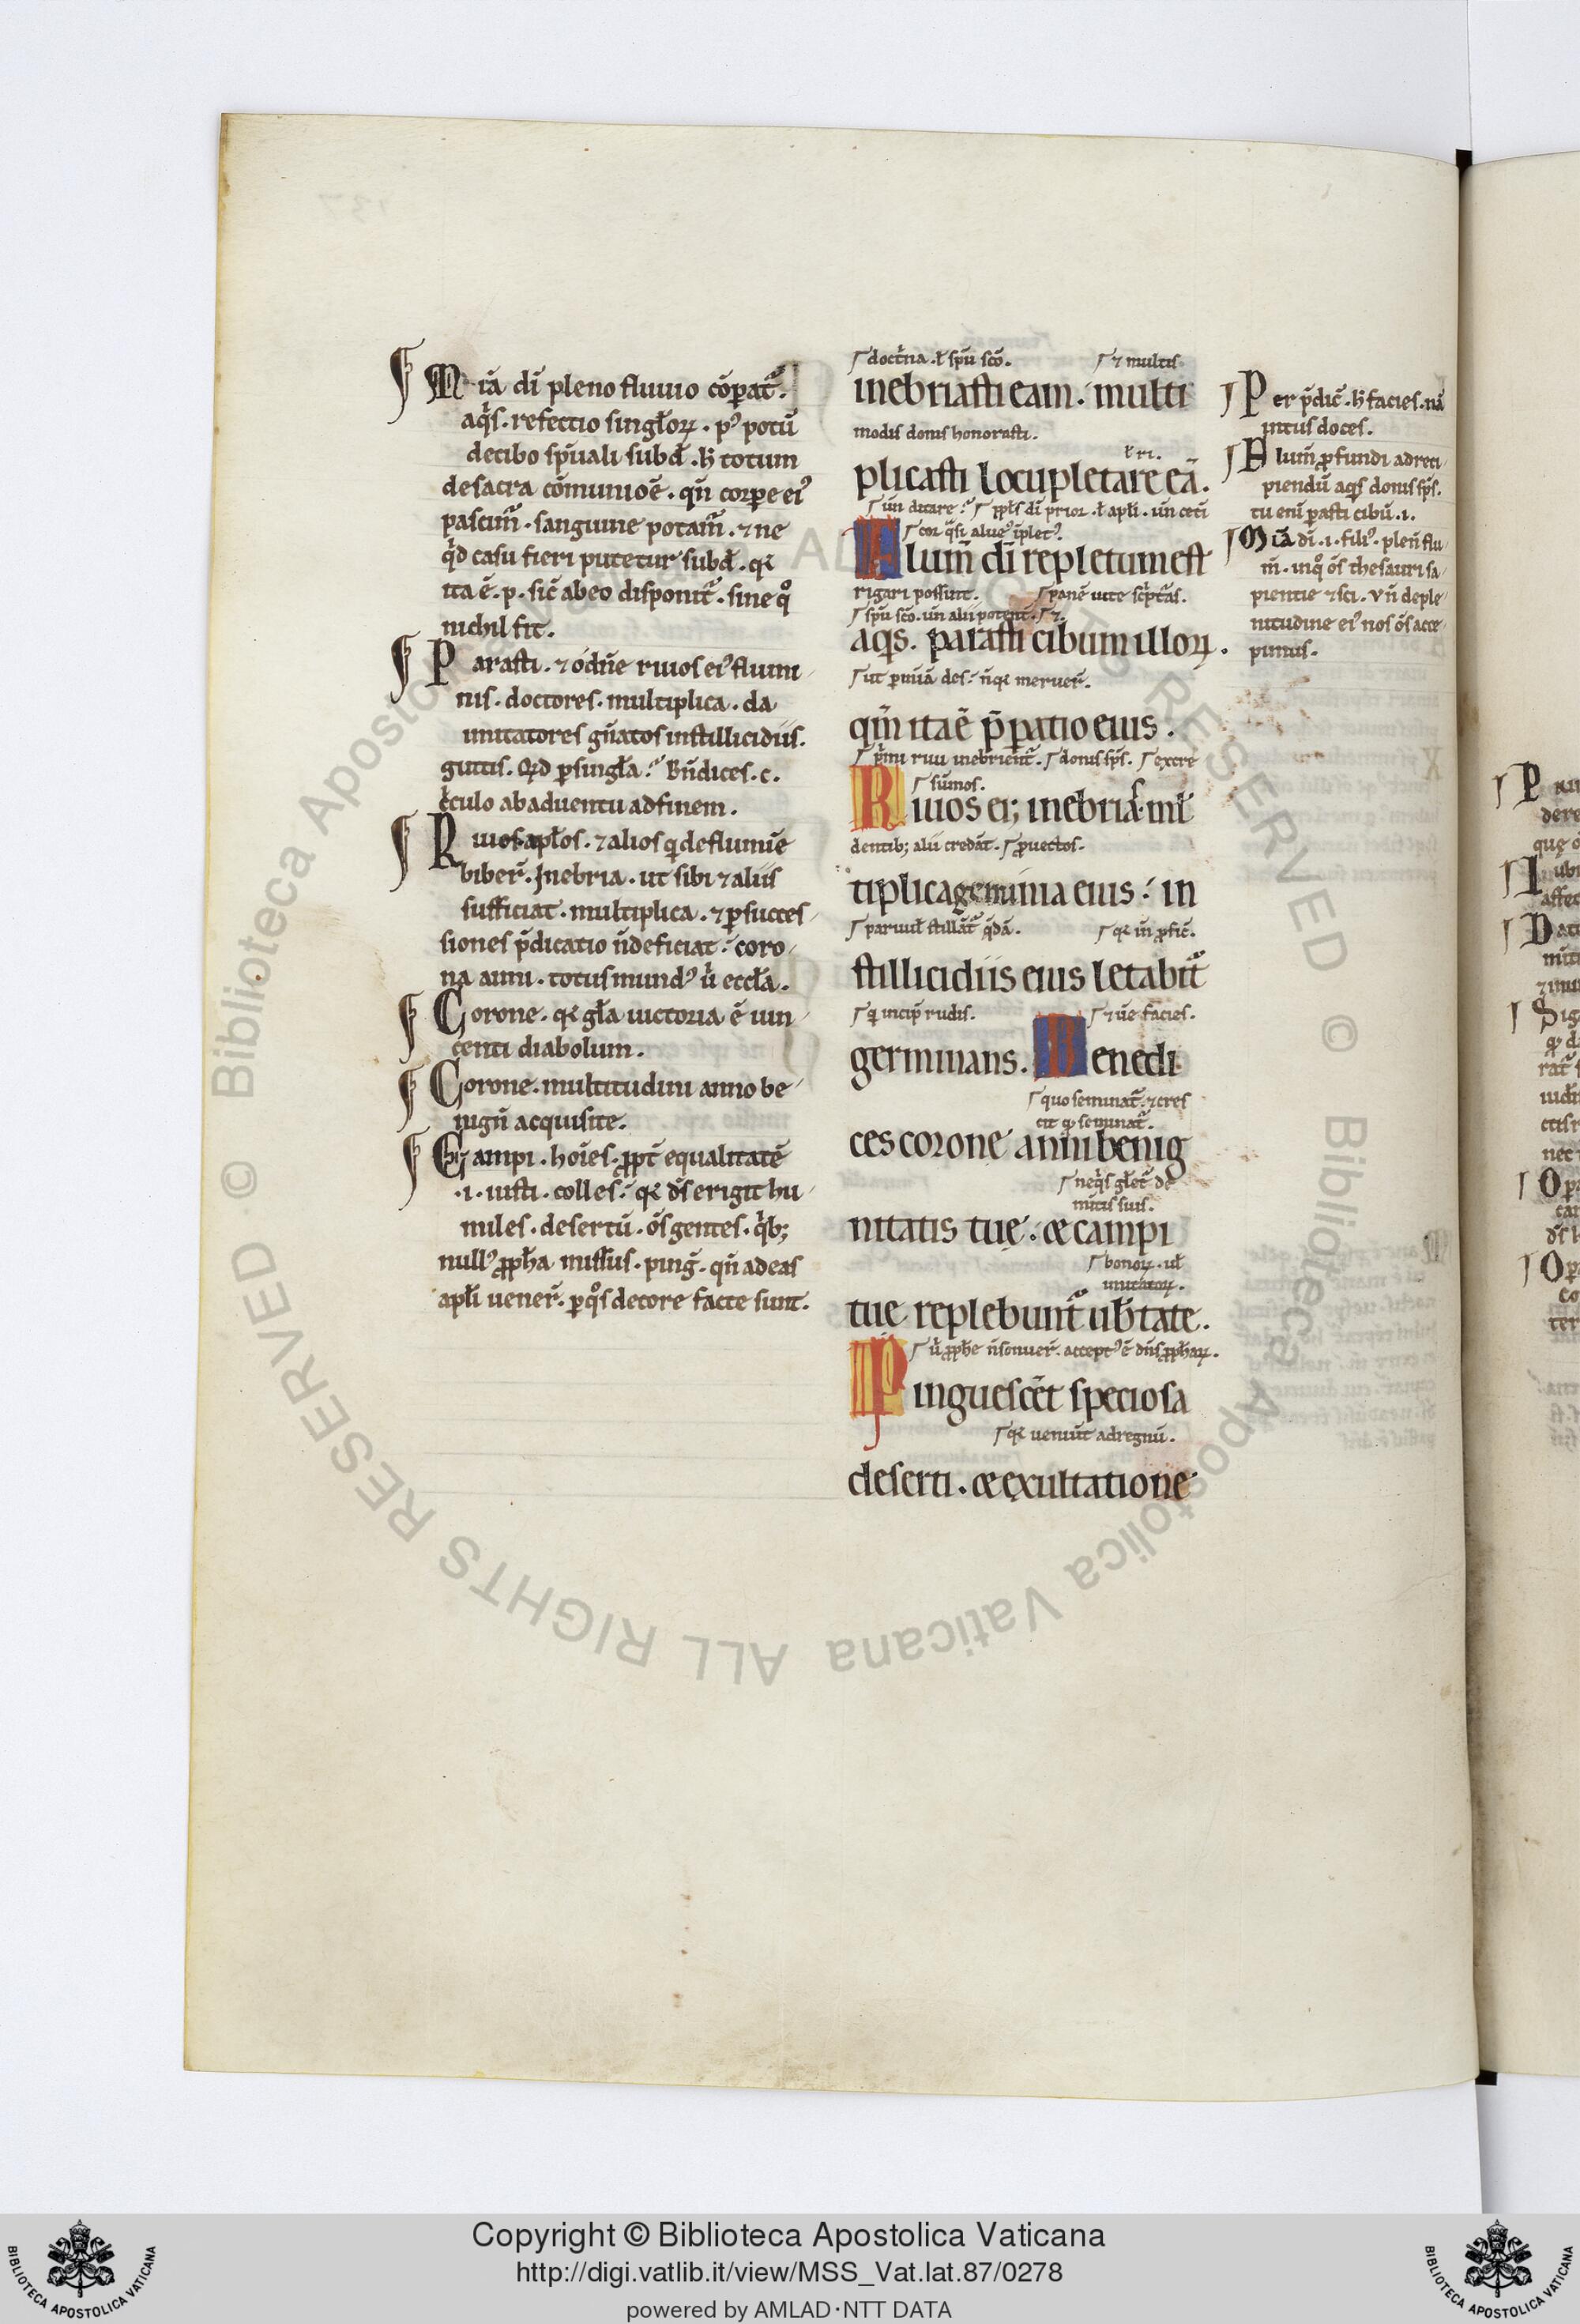 Mīa dī pleno fluuio cōparat᷑.
aqͥs. refectio singłoꝝ. pꝰ potū
decibo spūali subđ. ħ totum
desacra cōmunioē. qn̄ corpore eiꝰ
pascim᷑. sanguine potam᷑. ⁊ ne
qͥd casu fieri putetur subđ. qꝛ
ita ē. p. sic̄ abeo disponit᷑. sine qͦ
nichil fit.
Parasti. ⁊ odn̄e riuos eiꝰ flumi
nis. doctores. multiplica. da
imitatores gn̄atos instillicidiis.
guttis. Qđ ꝑsingła. Bn̄dices. c.
cͥculo ab aduentu ad finem.
Riuos apłos. ⁊ alios qͥ deflumīe
biber̄. Inebria. ut sibi ⁊ aliis
sufficiat. multiplica. ⁊ ꝑ succes
siones p̄dicatio n̄ deficiat. coro
na anni. totus mundꝰ uͥ ecc̄ła.
Corone. qꝛ gła uictoria ē uin
centi diabolum.
Corone. multitudini anno be
nign̄ acquisite.
Campi. hoīes. ꝓpt̄ equalitatē
.i. iusti. colles. qꝛ dš erigit hu
miles. desertū. oš gentes. qͥb;
nullꝰ ꝓpħa missus. ping̃. qn̄ ad eas
apłi uener̄. ꝑ qͦs decore facte sunt.
doctͥna. ł spū scō.
⁊ multis
inebriasti eam. multi
modis donis honorasti.
ł ri.
plicasti locupletare eā.
un̄ ditare. ꝓpłs dī prior. ł apłi. un̄ cetī
cor qͣsi alueꝰ īpletꝰ.
Flum̄ dī repletum est
rigari possint.
panē uite scͥptͣas.
spū scō. un̄ alii potent. ⁊.
aqͥs. parasti cibum illoꝝ.
ut ꝑ mīa des. n̄ qꝛ meruer̄.
qm̄ ita ē p̄paratio eius.
pͥmi riui inebrient᷑. donis spš. excre
sum̄os.
Riuos ei; inebria. mł
dentib; alii credāt. ꝓuectos.
tiplica genimina eius. in
paruuł stillāt᷑ qͣdā.
qꝛ in̄ ꝓfic̄.
stillicidiis eius letabit᷑
qͥ incip̄ rudis.
⁊ ūe facies.
germinans. Benedi
quo seminat᷑. ⁊ cres
cit qͩ seminat᷑.
ces corone anni benig
neqͥs głet᷑ de
mitis suis.
nitatis tuę. & campi
bonoꝝ. uł
imitatoꝝ.
tue replebunt᷑ ub̄tate.
uͥ ꝓpħe n̄ sonuer̄. acceptꝰ ē dn̄s ꝓpħaꝝ.
Pinguescēt speciosa
qꝛ ueniūt ad regnū.
deserti. & exultatione
Per p̄dic̄. ħ facies. nā
intus doces.
Flum̄ ꝓfundi ad reci
piendū aqͣs donis spš.
tu enī parasti cibū. i.
Mīa dī. i. filiꝰ. plen̄ flu
m̄. in qͦ oš thesauri sa
pientie ⁊ sci. Vn̄ de ple
nitudine eiꝰ nos oš acce
pimus.
Copyright © Biblioteca Apostolica Vaticana
http://digi.vatlib.it/view/MSS_Vat.lat.87/0278
powered by AMLAD·NTT DATA